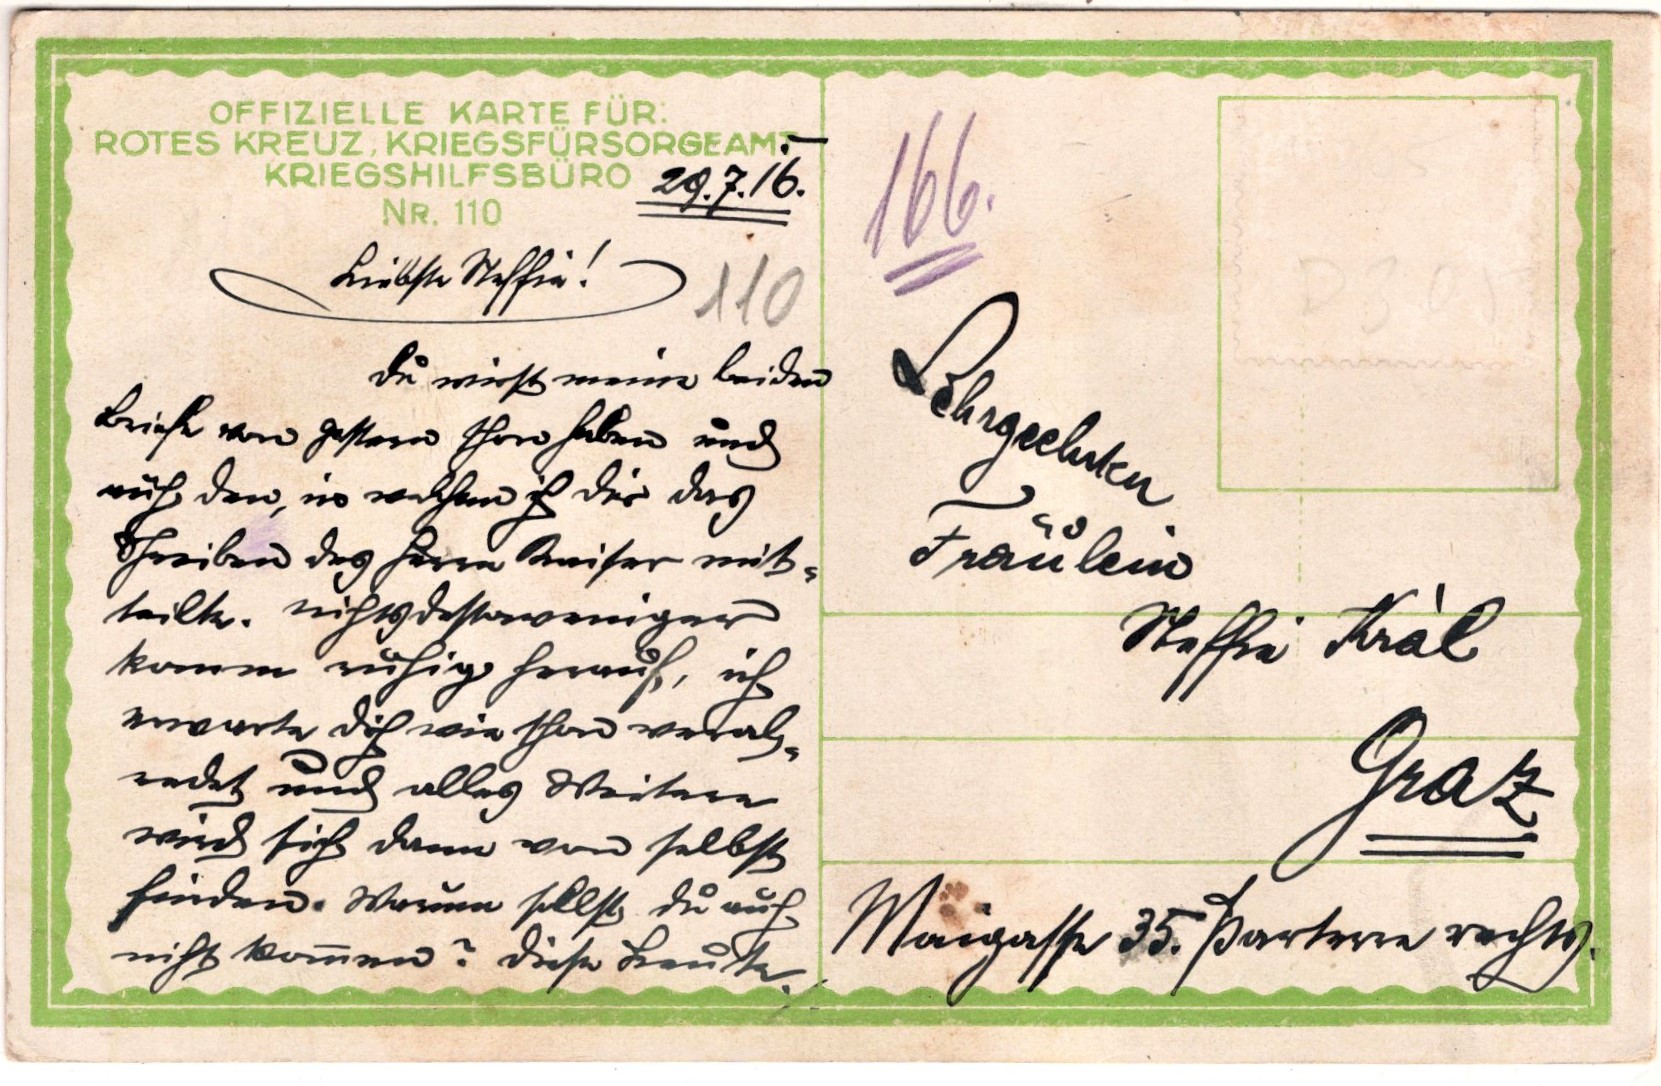 OFFIZIELLE KARTE FÜR:
ROTES KREUZ, KRIEGSFÜRSORGEAMT
KRIEGSHILFSBÜRO
NR. 110
29.7.16.
Liebste Steffie!
110
Du wirst meine beiden
Briefe von gestern schon haben und
auch den, in welchem ich dir das
Schreiben des Herrn Kaiser mit-
teilte. Nichtsdestoweniger
komm ruhig herauf, ich
erwarte dich wie schon verab-
redet und alles Weitere
wird sich dann von selbst
finden. Warum sollst du auch
nicht kommen? Diese Leute
166.
Sehrgeehrten
Fräulein
Steffie Král
Graz
Maigasse 35. Parterre rechts.